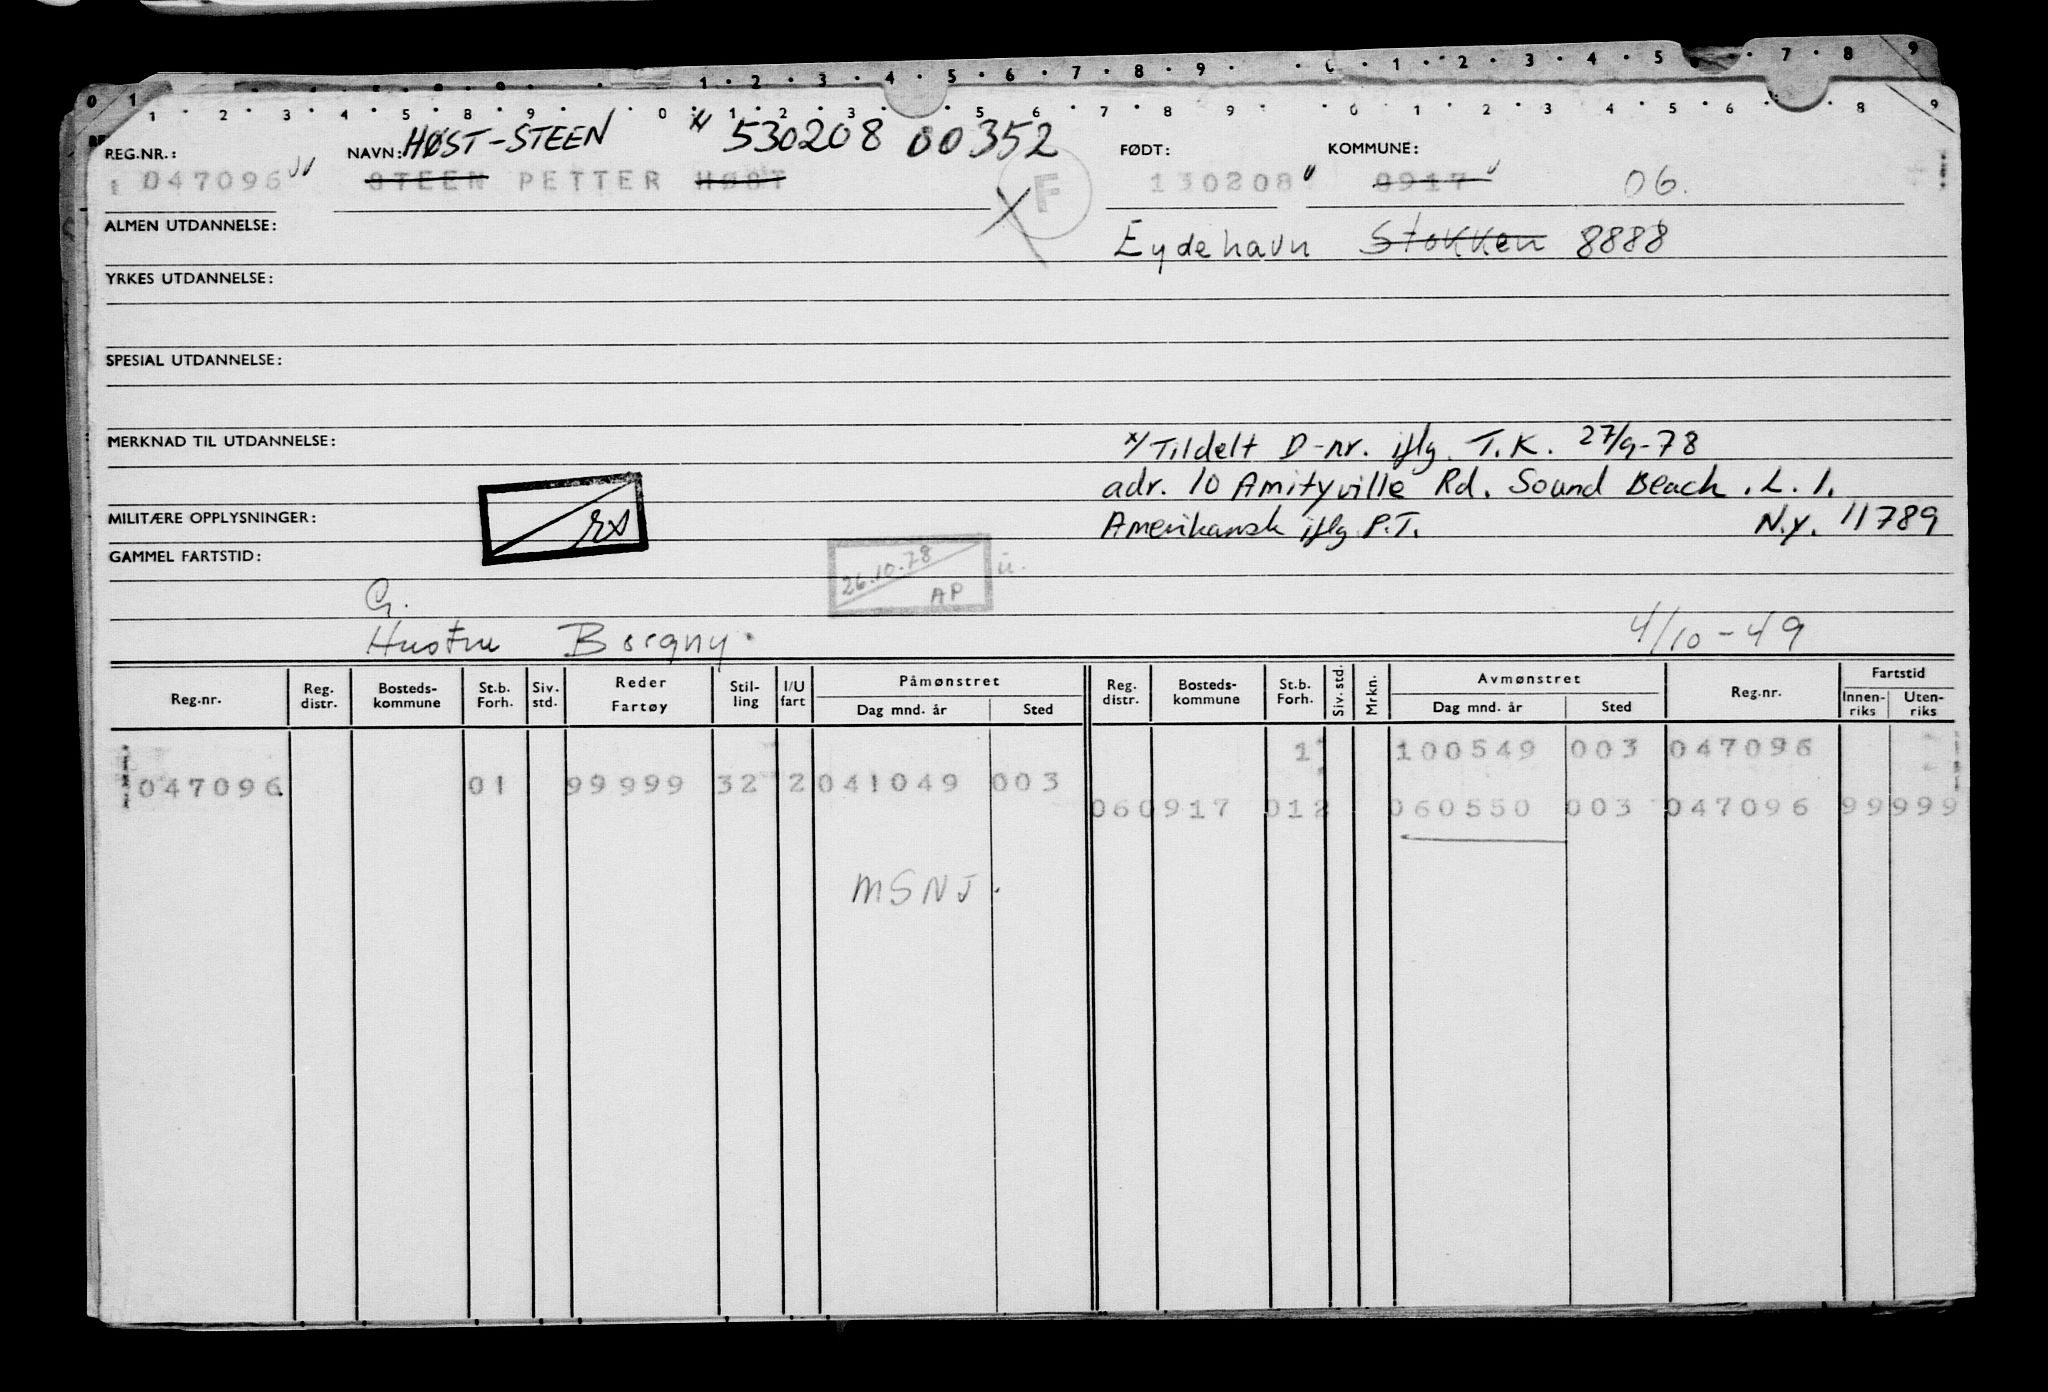 1 · 2 · 3 · 4 · 5 · 6 · 7 · 8 · 9 · · 0 · 1 · 2 · 3 · 4 · 5 7 · 8 9
0 1
1 · 2 · 3 · 4 · 5 · 8 · 9 · 0 · 1 · 2 · 3 · 5 · 6 · 7 · 8 · 9 · 0 · 1 · 2 · 3 · 4 · 5 · 6 · 8 · 9
REG.NR.: NAVN: HØST-STEEN x/ 530208 00352 FØDT: KOMMUNE:
047096 STEEN PETTER HØST F 130208 0917 06.
ALMEN UTDANNELSE: Eydehavn Stokken 8888
YRKES UTDANNELSE:
SPESIAL UTDANNELSE:
MERKNAD TIL UTDANNELSE: x/ Tildelt D-nr. iflg. T.K. 27/9-78
adr. 10 Amityville Rd. Sound Beach. L. I.
MILITÆRE OPPLYSNINGER: Amerikansk iflg P.T. N.y. 11789
GAMMEL FARTSTID:
26.10.78 AP
G.
Hustru Borgny. 4/10-49
Reg.nr. Reg. distr. Bosteds-kommune St.b. Forh. Siv. std. Reder Fartøy Stil-ling I/U fart Påmønstret Dag mnd. år Sted Reg. distr. Bosteds-kommune St.b. Forh. Siv. std. Mrkn. Avmønstret Dag mnd. år Sted Reg.nr. Fartstid Innen-riks Uten-riks
1 100549 003 047096
047096 01 99999 32 2 041049 003
060917 012 060550 003 047096 99999
MSNJ.